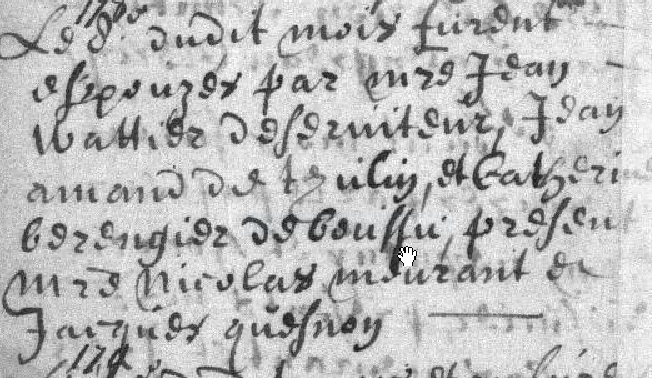 Le 8e dudit mois furent
espouzes par mre Jean
Wattier deserviteur, Jean
amand de thulin, et Catheri
berengier de boussu, presen
mre Nicolas meurant et
Jacques quesnoy